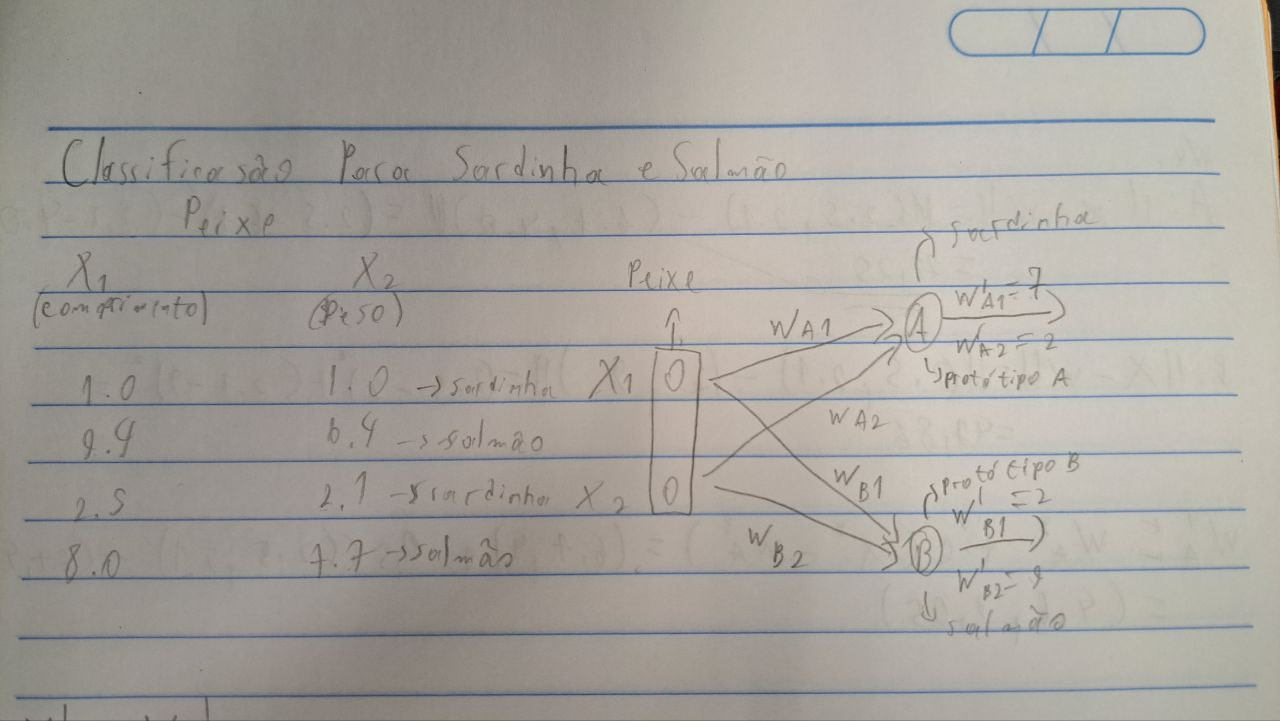 Classificasão Para Sardinha e Salmão
Peixe
X1 X2
(comprimento) (Peso)
1.0 1.0 → sardinha
9.4 6.4 → salmão
2.5 2.1 → sardinha
8.0 7.7 → salmão
Peixe
X1 0
X2 0
WA1
WA2
WB1
WB2
sardinha
A
W'A1 = 7
W'A2 = 2
protótipo A
protótipo B
B
W'B1 = 2
W'B2 = 9
salmão